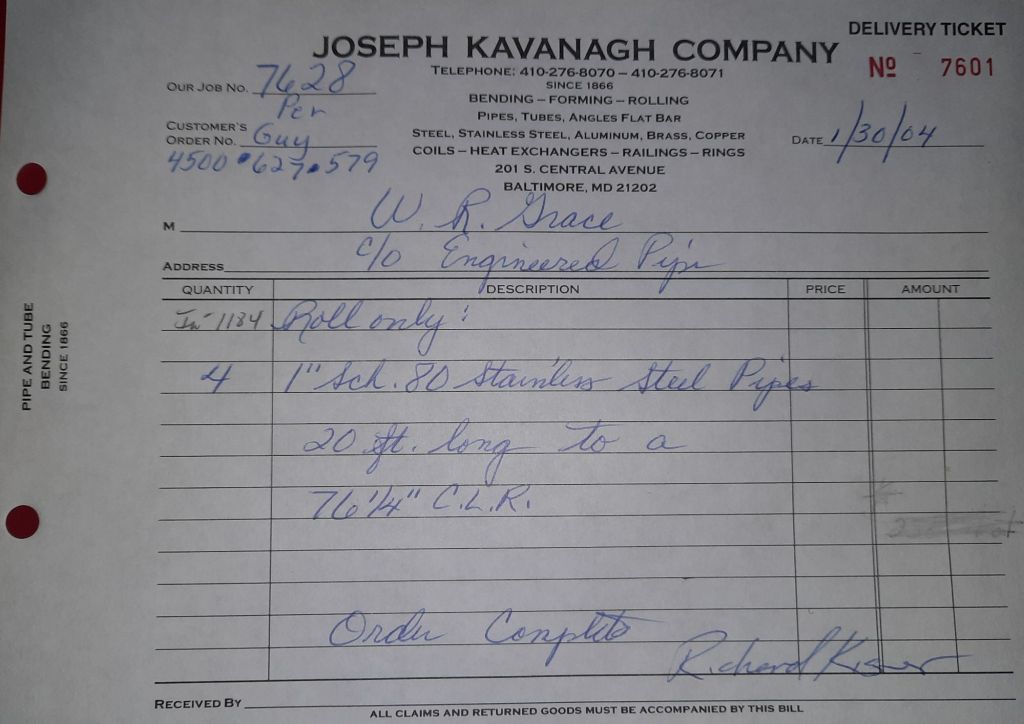 DELIVERY TICKET
JOSEPH KAVANAGH COMPANY
Nº 7601
TELEPHONE: 410-276-8070 – 410-276-8071
SINCE 1866
BENDING – FORMING – ROLLING
PIPES, TUBES, ANGLES FLAT BAR
STEEL, STAINLESS STEEL, ALUMINUM, BRASS, COPPER
COILS – HEAT EXCHANGERS – RAILINGS – RINGS
201 S. CENTRAL AVENUE
BALTIMORE, MD 21202
OUR JOB NO. 7628
Per
CUSTOMER'S
ORDER NO. Guy
4500•627•579
DATE 1/30/04
M W. R. Grace
ADDRESS c/o Engineered Pipe
QUANTITY DESCRIPTION PRICE AMOUNT
In-1184 Roll only:
4 1" Sch. 80 Stainless Steel Pipes
20 ft. long to a
76 1/4" C.L.R.
Order Complete
Richard Kisner
RECEIVED BY
ALL CLAIMS AND RETURNED GOODS MUST BE ACCOMPANIED BY THIS BILL
PIPE AND TUBE
BENDING
SINCE 1866